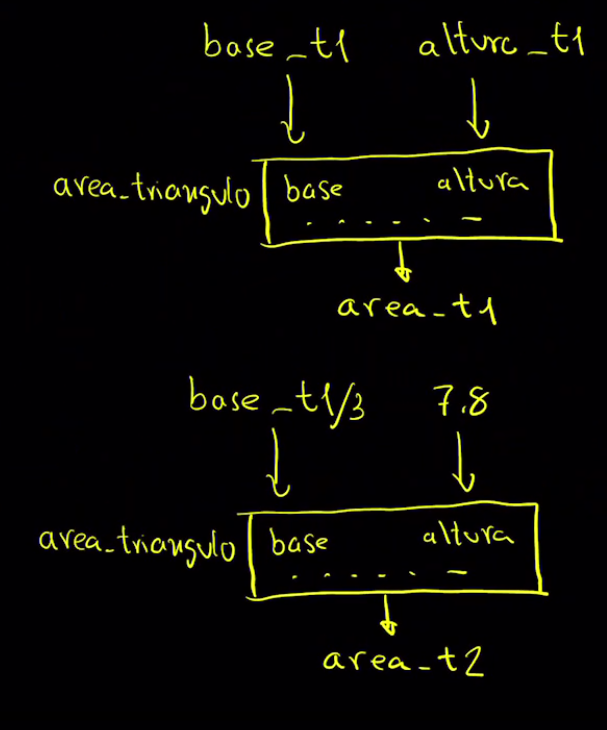 base_t1 altura_t1
area_triangulo base altura
area_t1
base_t1/3 7.8
area_triangulo base altura
area_t2